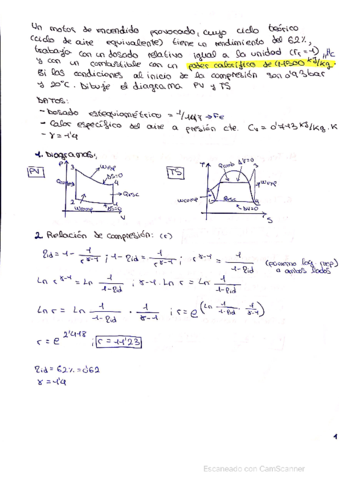 Un motor de encendido provocado, cuyo ciclo teórico
(ciclo de aire equivalente) tiene un rendimiento del 62%,
trabaja con un dosado relativo igual a la unidad (Fr=1), Pc
y con un combustible con un poder calorífico de 44500 KJ/kg.
Si las condiciones al inicio de la compresión son 0'93bar
y 20ºC. Dibuje el diagrama PV y TS
DATOS:
- Dosado estequiométrico = 1/14'7 → Fe
- Calor específico del aire a presión cte. Cv = 0'713 KJ/kg.K
- γ = 1'4
1. Diagramas:
PV
P
3
2
4
1
V
Qcomb
Wexp
ΔS=0
Qesc
Wcomp
ΔS=0
TS
T
Qcomb ΔV=0
3
Wexp
2
4
Wcomp
Qesc
1
ΔV=0
S
2. Relación de compresión: (r)
ηid = 1 - 1/r^γ-1 ; 1 - ηid = 1/r^γ-1 ; r^γ-1 = 1/1-ηid (ponemos log nep)
a ambos lados
Ln r^γ-1 = Ln 1/1-ηid ; γ-1 · Ln r = Ln 1/1-ηid
Ln r = Ln 1/1-ηid · 1/γ-1 ; r = e^(Ln 1/1-ηid · 1/γ-1)
r = e^2'418 ; r = 11'23
ηid = 62% = 0'62
γ = 1'4
1
Escaneado con CamScanner